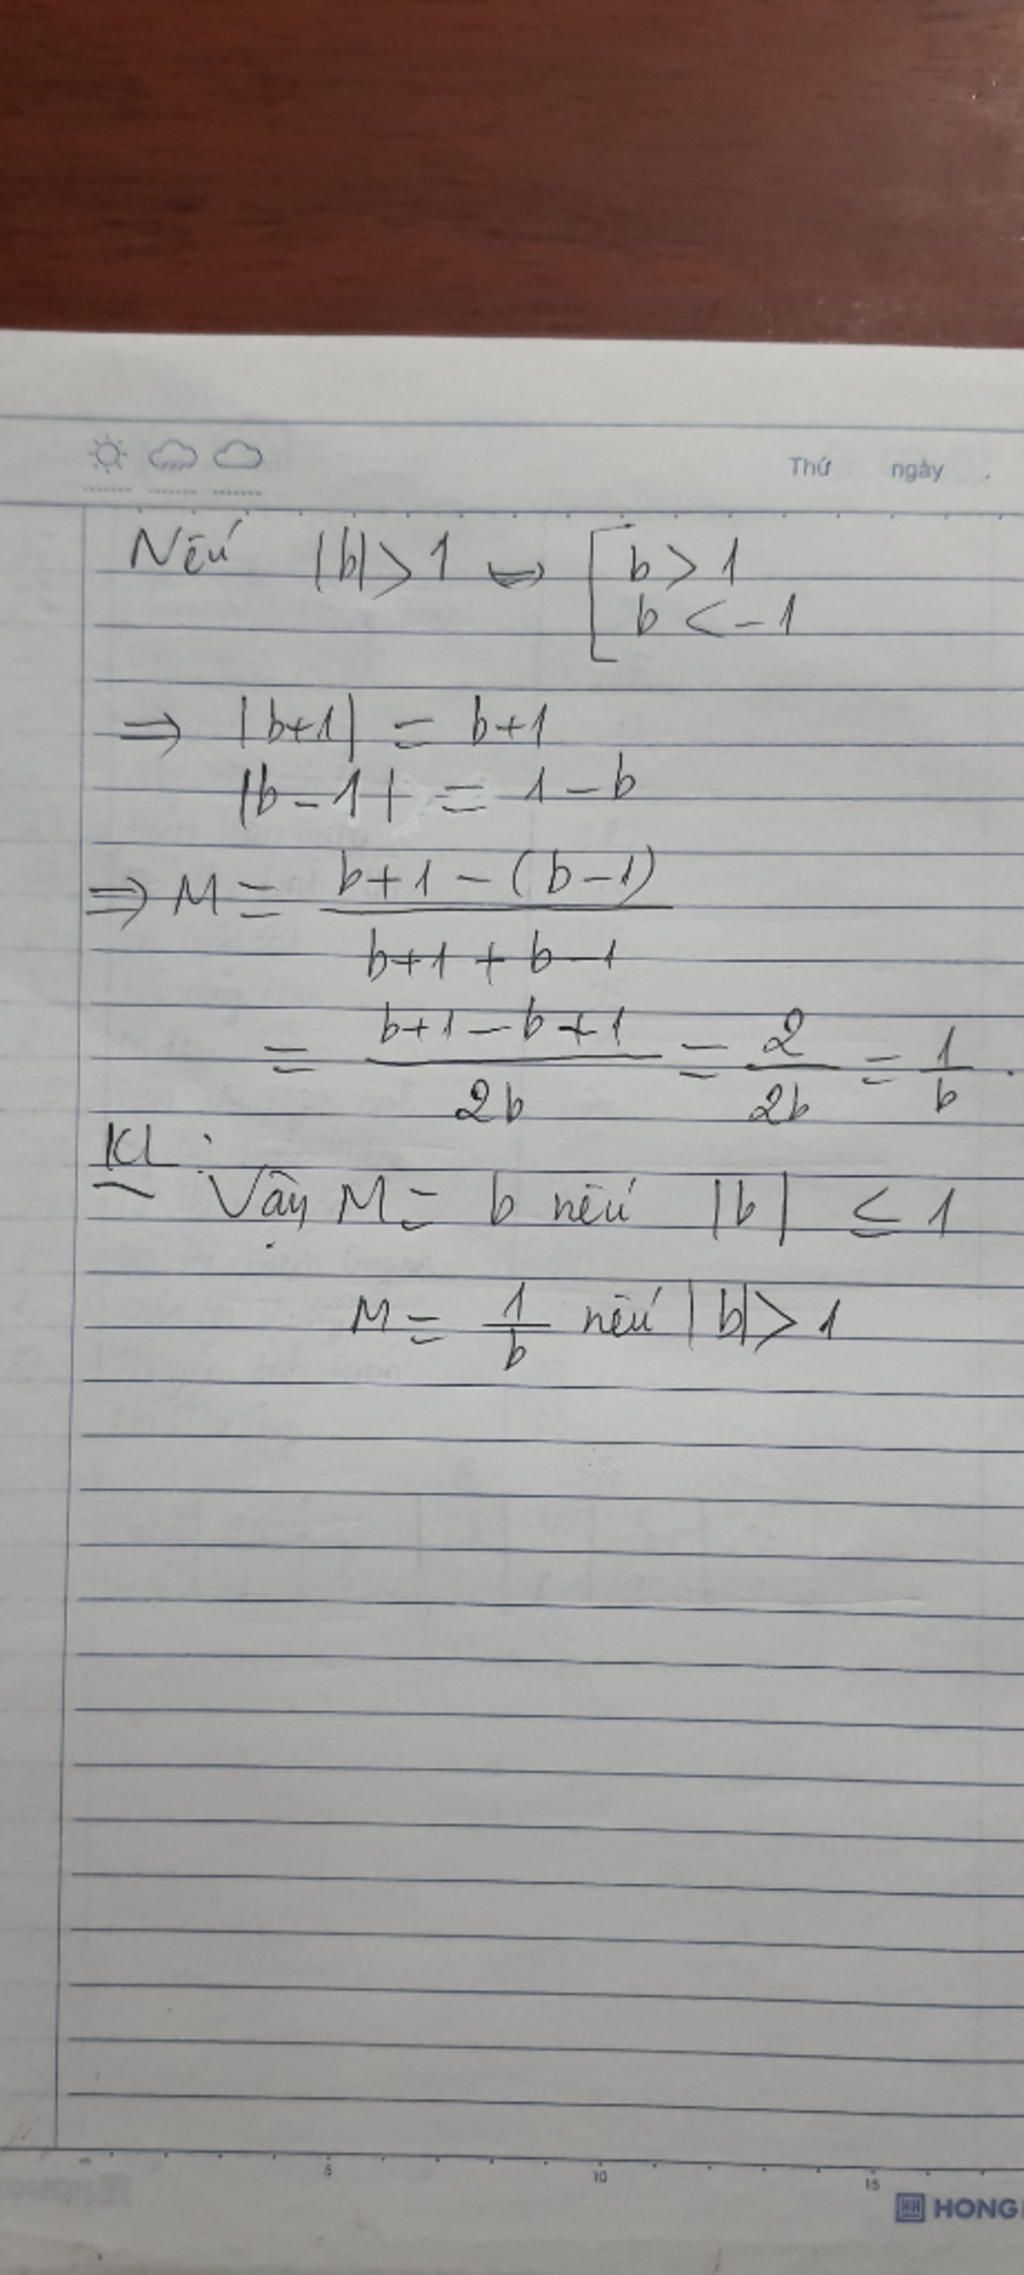 Thứ ngày
Nếu |b| > 1 ⇔ [ b > 1
b < -1
⇒ |b+1| = b+1
|b-1| = 1-b
⇒ M = b+1-(b-1)
b+1+b-1
= b+1-b+1 / 2b = 2/2b = 1/b .
KL :
Vậy M = b nếu |b| ≤ 1
M = 1/b nếu |b| > 1
5 10 15
HONG